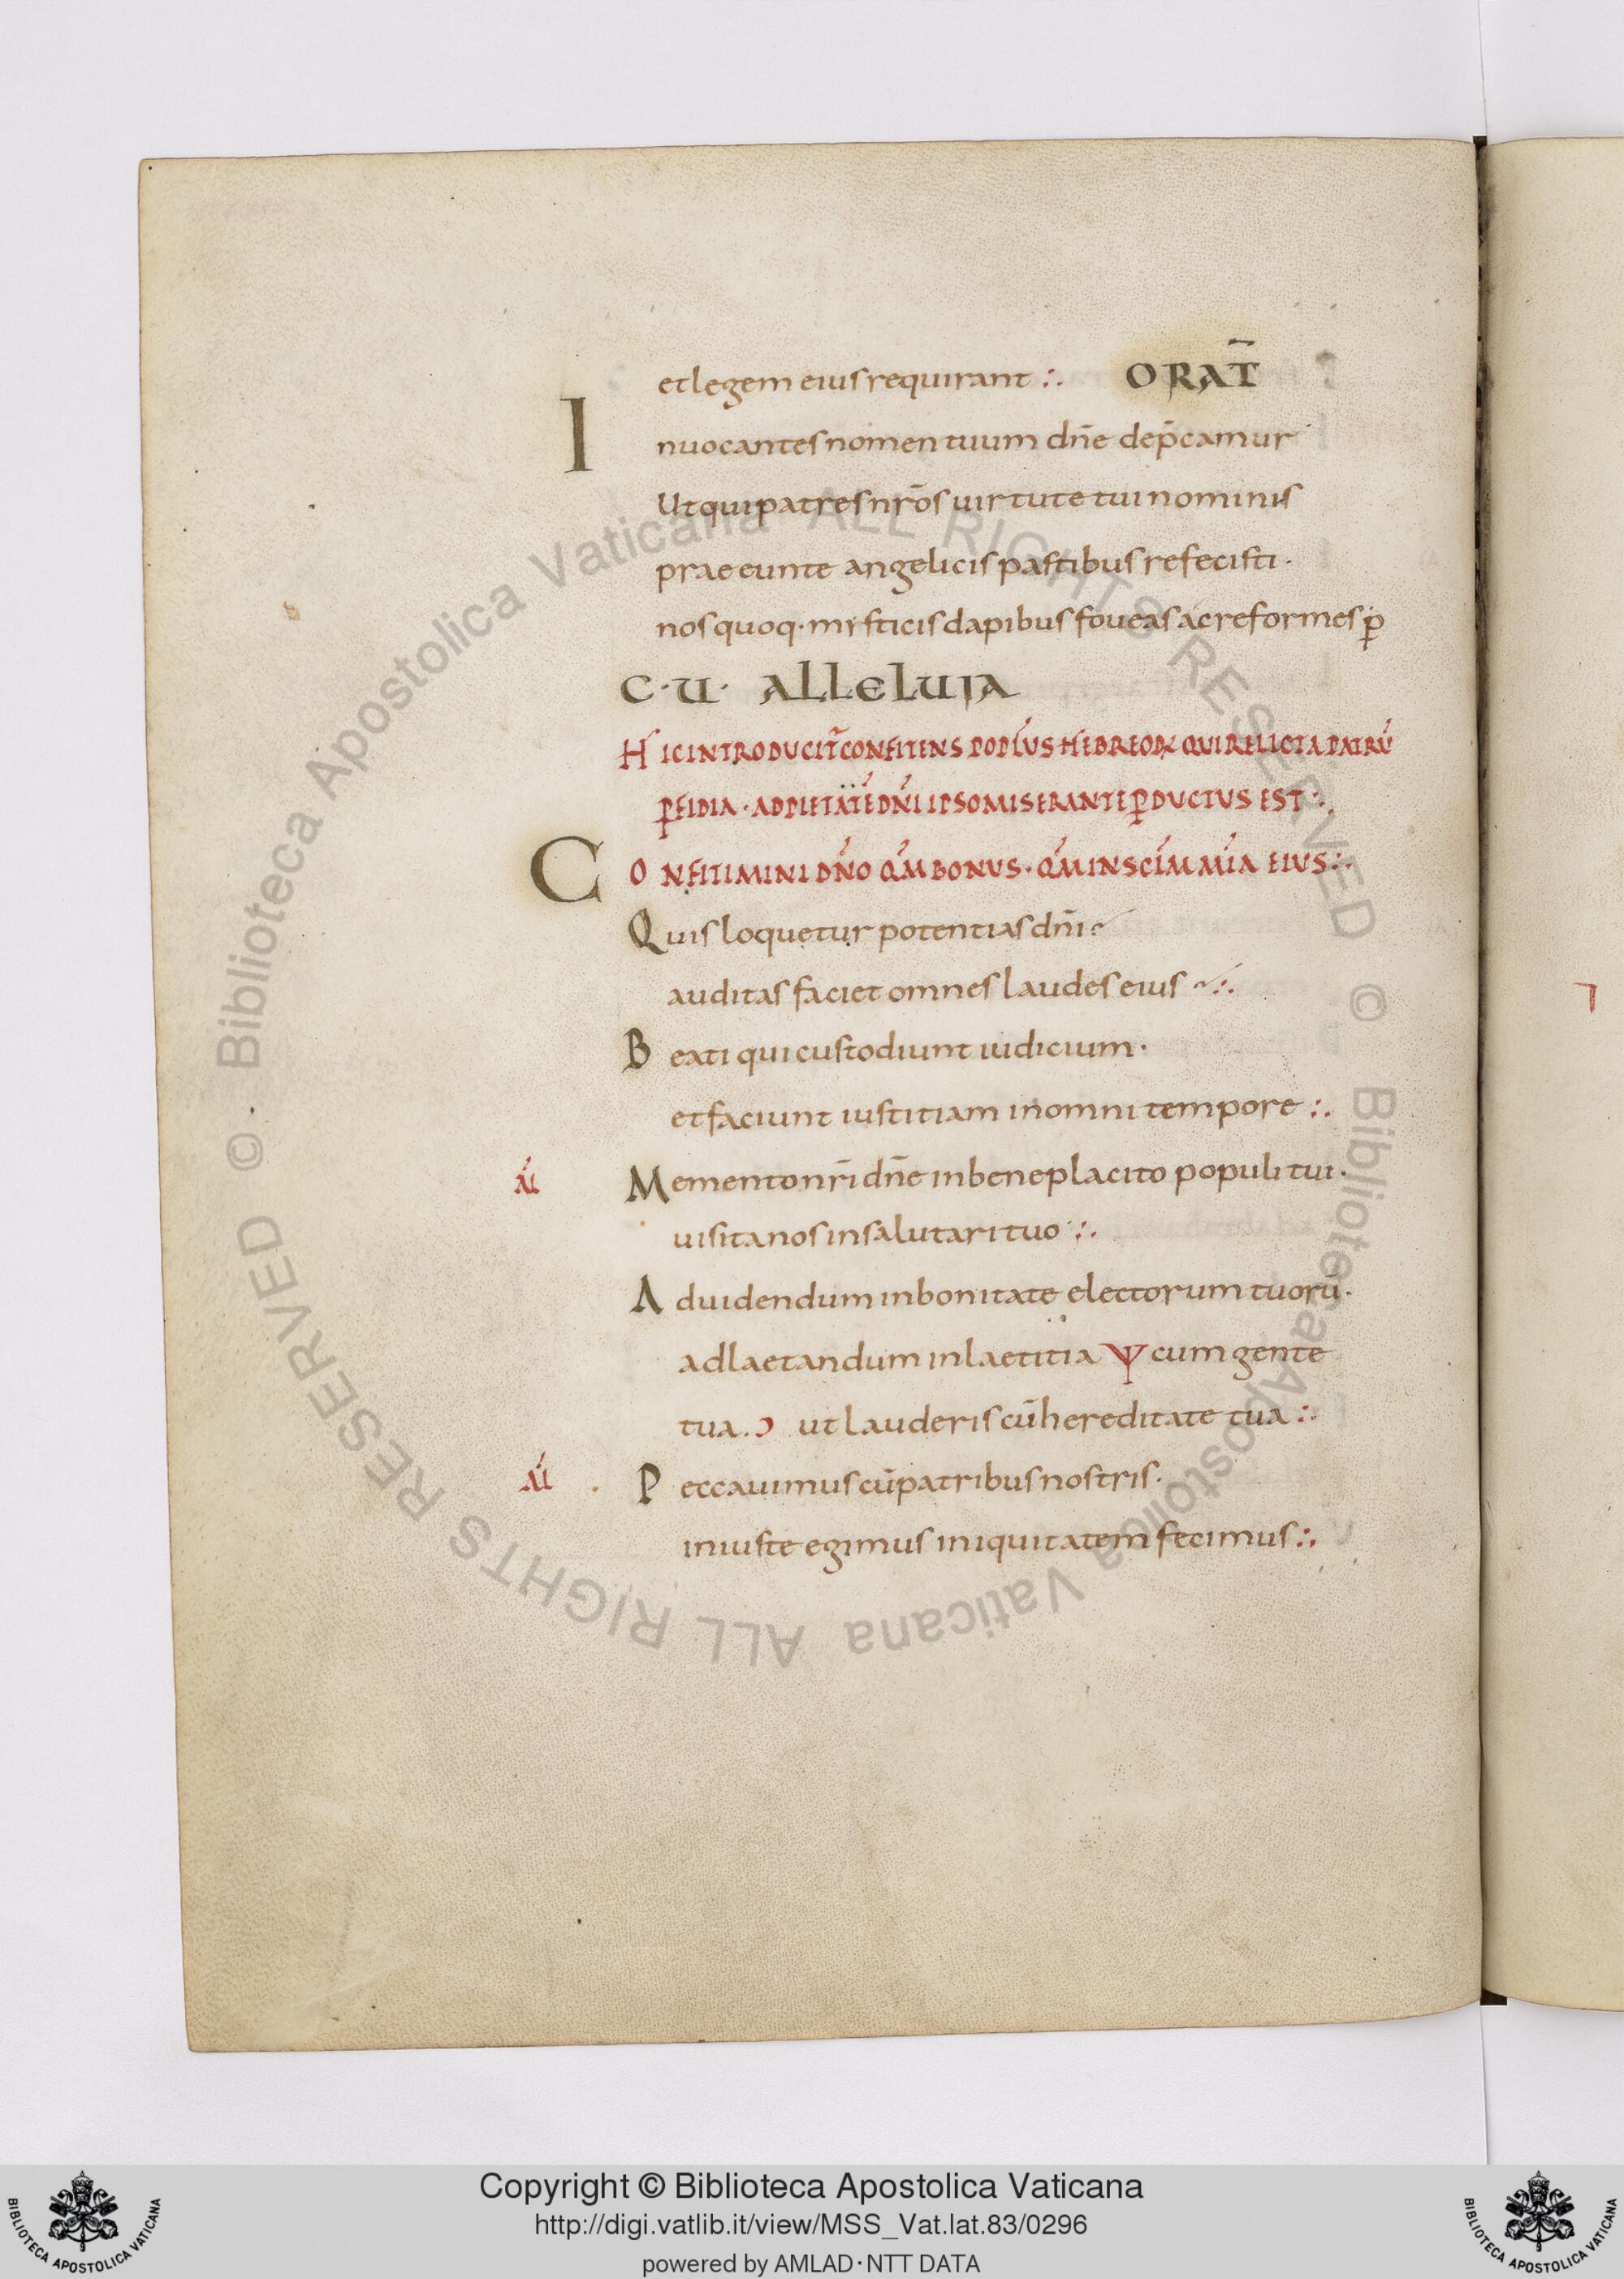 et legem eius requirant :. ORAT̄
Inuocantes nomen tuum dn̄e dep̄camur
Ut qui patres nr̄os uirtute tui nominis
prae eunte angelicis pastibus refecisti ·
nos quoq· misticis dapibus foueas ac reformes p̄
C·U· ALLELUIA
HIC INTRODUCIT̄ CONFITENS POPĹUS HEBREOꝜ QUI RELICTA PATRŪ
ꝑFIDIA · AD PIETATĒ DN̄I IPSO MISERANTE ꝑDUCTUS EST :.
CONFITIMINI DN̄O QM̄ BONUS · QM̄ IN SCĪM MĪA EIUS :.
Quis loquetur potentias dn̄i
auditas faciet omnes laudes eius :.
Beati qui custodiunt iudicium ·
et faciunt iustitiam in omni tempore :.
al̄ Memento nr̄i dn̄e in beneplacito populi tui ·
uisita nos in salutari tuo :.
Ad uidendum in bonitate electorum tuorū ·
ad laetandum in laetitia Ψ cum gente
tua . Ɔ ut lauderis cū hereditate tua :.
al̄ Peccauimus cū patribus nostris ·
iniuste egimus iniquitatem fecimus :.
© Biblioteca Apostolica Vaticana ALL RIGHTS RESERVED © Biblioteca Apostolica Vaticana ALL RIGHTS RESERVED
Copyright © Biblioteca Apostolica Vaticana
http://digi.vatlib.it/view/MSS_Vat.lat.83/0296
powered by AMLAD · NTT DATA
BIBLIOTECA APOSTOLICA VATICANA
BIBLIOTECA APOSTOLICA VATICANA